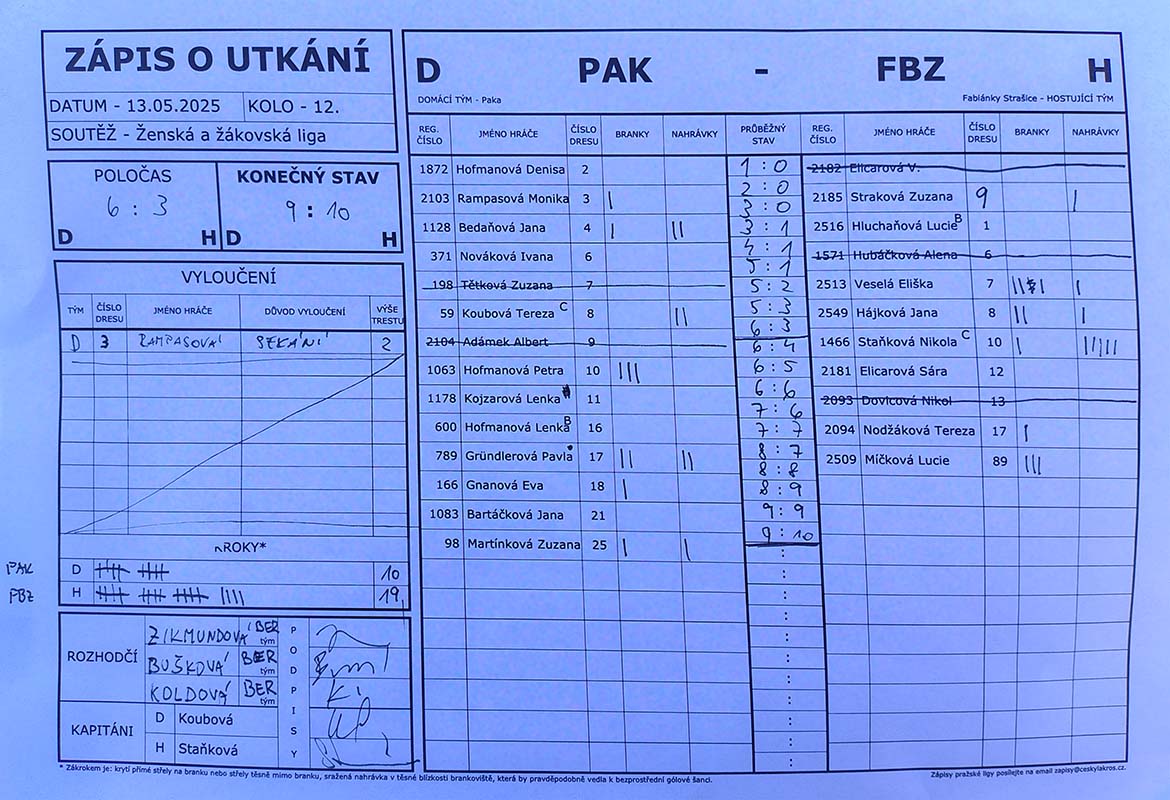 ZÁPIS O UTKÁNÍ
DATUM - 13.05.2025 KOLO - 12.
SOUTĚŽ - Ženská a žákovská liga
POLOČAS KONEČNÝ STAV
6 : 3 9 : 10
D H D H
VYLOUČENÍ
TÝM ČÍSLO DRESU JMÉNO HRÁČE DŮVOD VYLOUČENÍ VÝŠE TRESTU
D 3 RAMPASOVÁ SEKÁNÍ 2
ROKY*
PAK D 10
FBZ H 19
ROZHODČÍ
ZIKMUNDOVÁ BER tým
BUŠKOVÁ BER tým
KOLDOVÁ BER tým
PODPISY
KAPITÁNI
D Koubová
H Staňková
D PAK - FBZ H
DOMÁCÍ TÝM - Paka Fabiánky Strašice - HOSTUJÍCÍ TÝM
REG. ČÍSLO JMÉNO HRÁČE ČÍSLO DRESU BRANKY NAHRÁVKY PRŮBĚŽNÝ STAV REG. ČÍSLO JMÉNO HRÁČE ČÍSLO DRESU BRANKY NAHRÁVKY
1872 Hofmanová Denisa 2
2103 Rampasová Monika 3 |
1128 Bedaňová Jana 4 | ||
371 Nováková Ivana 6
198 Tětková Zuzana 7
59 Koubová Tereza C 8 ||
2104 Adámek Albert 9
1063 Hofmanová Petra 10 |||
1178 Kojzarová Lenka 11
600 Hofmanová Lenka B 16
789 Gründlerová Pavla 17 || ||
166 Gnanová Eva 18 |
1083 Bartáčková Jana 21
98 Martínková Zuzana 25 | |
1 : 0
2 : 0
3 : 0
3 : 1
4 : 1
5 : 1
5 : 2
5 : 3
6 : 3
6 : 4
6 : 5
6 : 6
7 : 6
7 : 7
8 : 7
8 : 8
8 : 9
9 : 9
9 : 10
2182 Elicarová V.
2185 Straková Zuzana 9 |
2516 Hluchaňová Lucie B 1
1571 Hubáčková Alena 6
2513 Veselá Eliška 7 |
2549 Hájková Jana 8 || |
1466 Staňková Nikola C 10 | |||||
2181 Elicarová Sára 12
2093 Dovicová Nikol 13
2094 Nodžáková Tereza 17 |
2509 Míčková Lucie 89 |||
* Zákrokem je: krytí přímé střely na branku nebo střely těsně mimo branku, sražená nahrávka v těsné blízkosti brankoviště, která by pravděpodobně vedla k bezprostřední gólové šanci.
Zápisy pražské ligy posílejte na email zapisy@ceskylakros.cz.